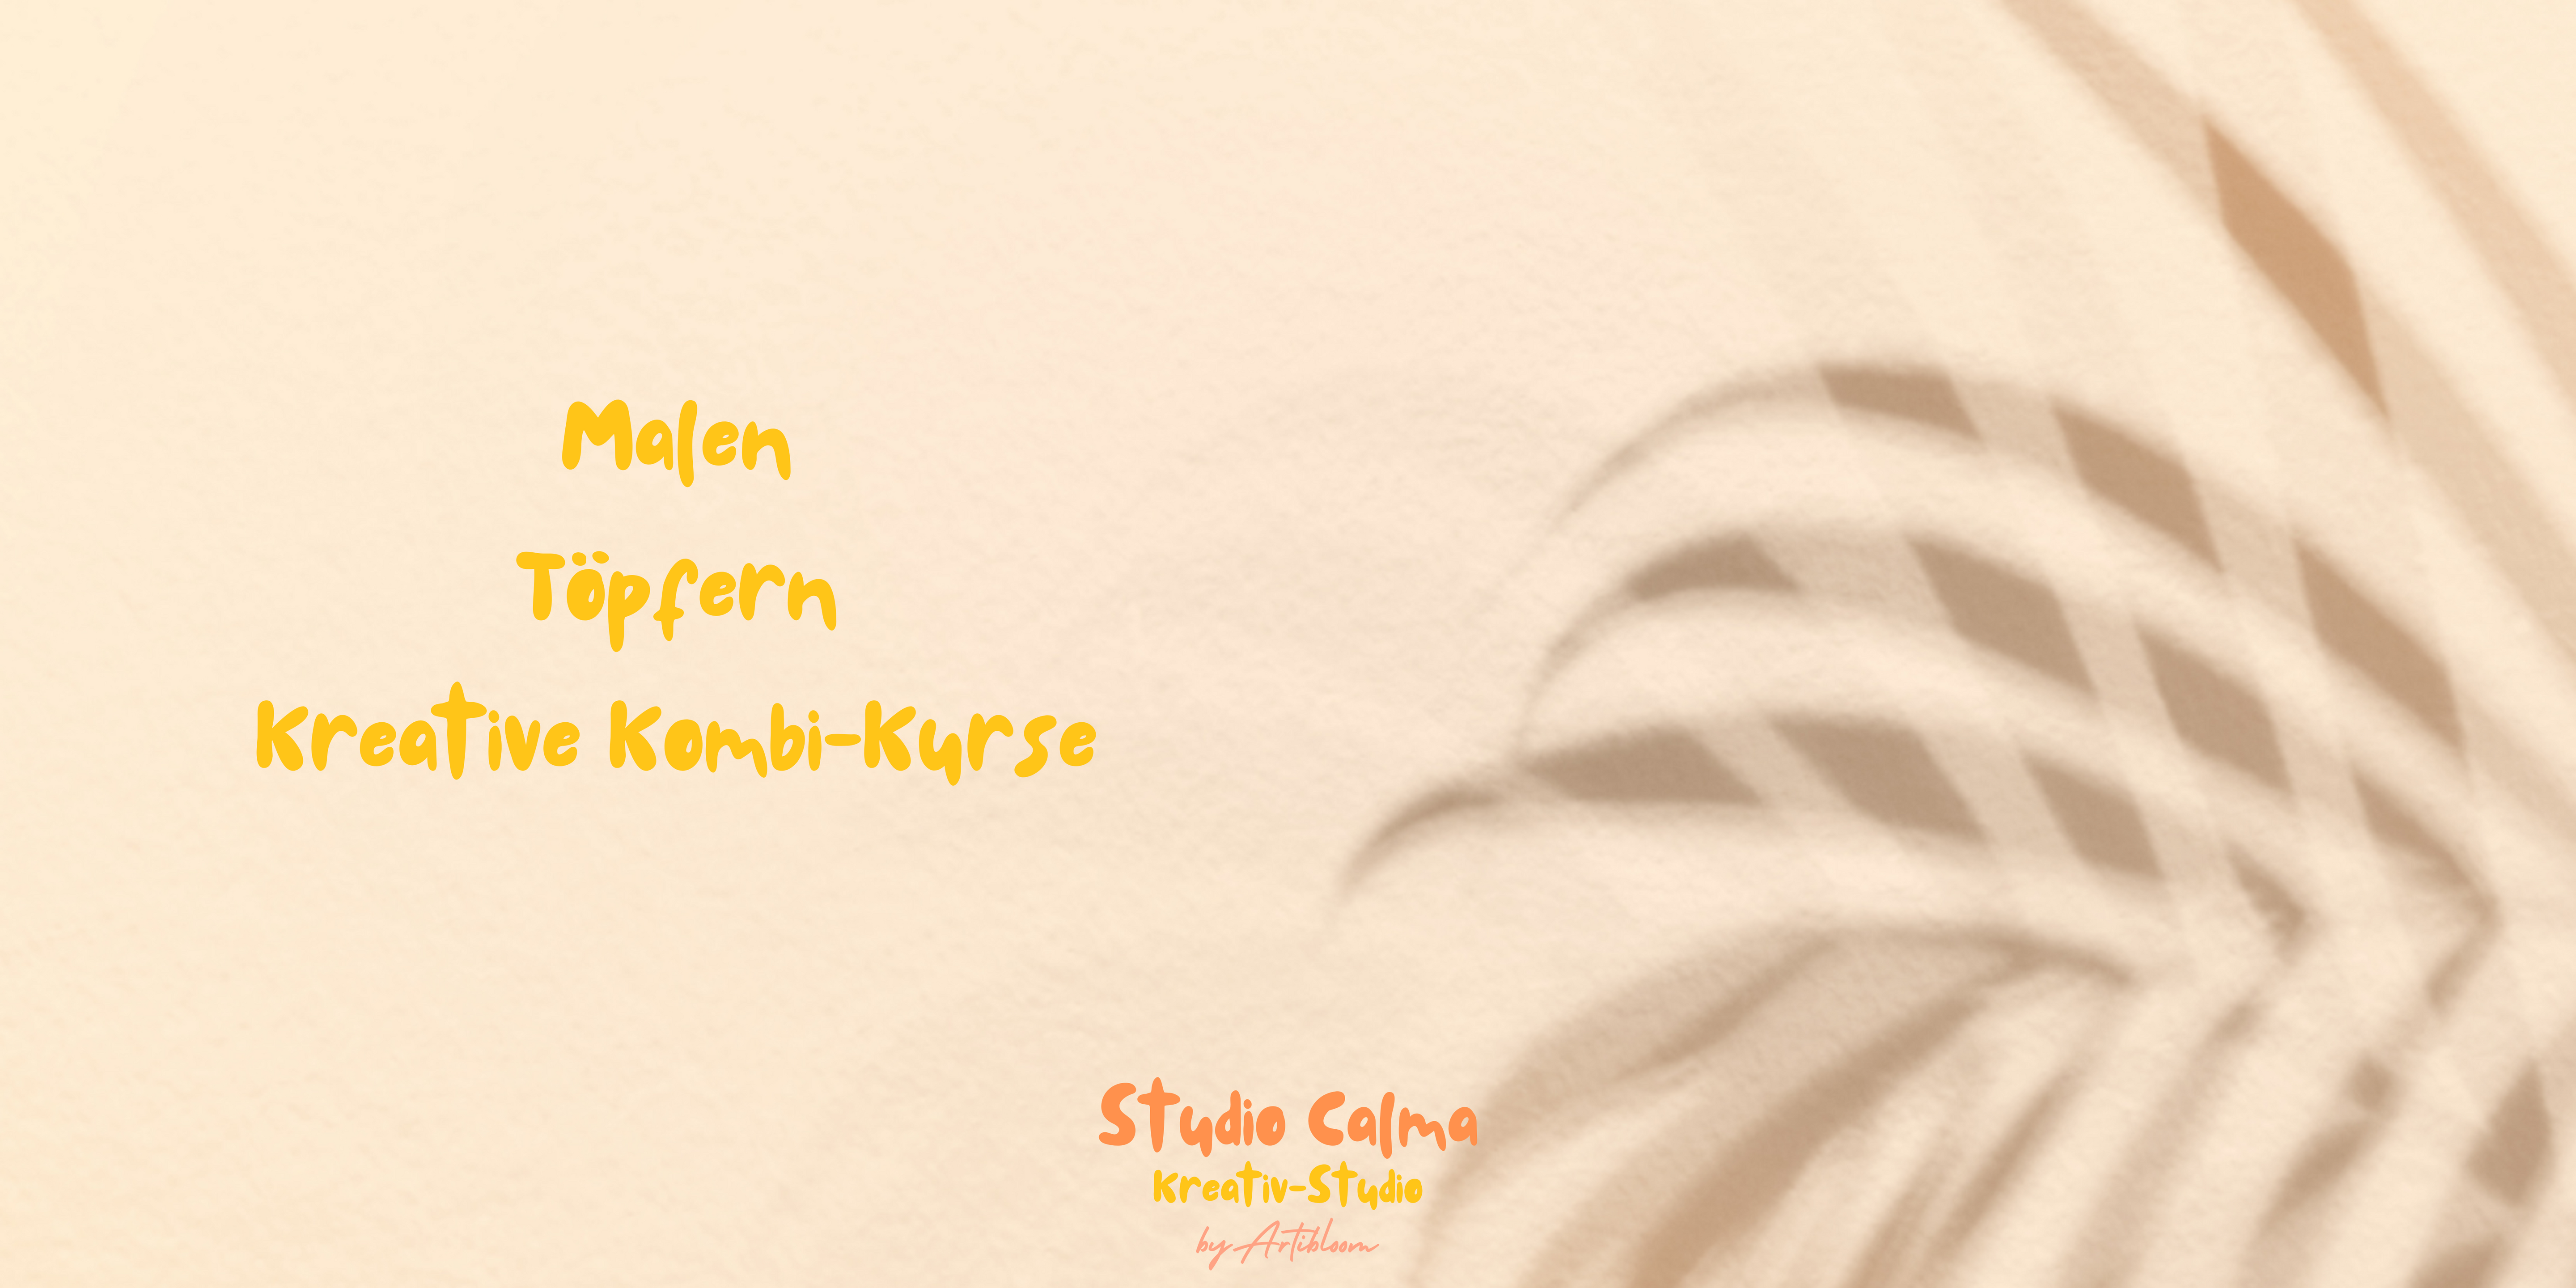 Malen
Töpfern
Kreative Kombi-Kurse
Studio Calma
Kreativ-Studio
by Artibloom